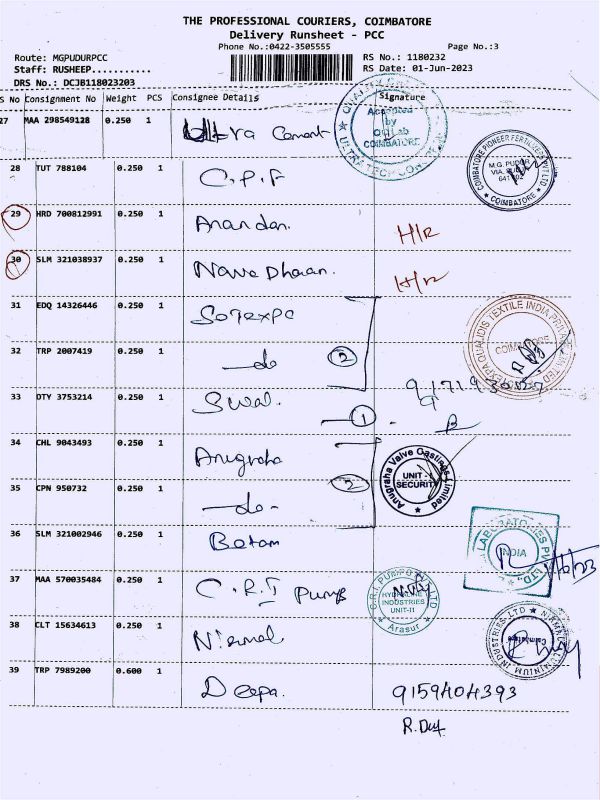 THE PROFESSIONAL COURIERS, COIMBATORE
Delivery Runsheet - PCC
Phone No.:0422-3505555 Page No.:3
Route: MGPUDURPCC RS No.: 1180232
Staff: RUSHEEP........... RS Date: 01-Jun-2023
DRS No.: DCJB1180232​03
S No Consignment No Weight PCS Consignee Details Signature
27 MAA 298549128 0.250 1 Ultra Cement
Accepted
by
COIMBATORE
28 TUT 788104 0.250 1 C.P.F
COIMBATORE PIONEER FERTILIZERS PVT LTD
M.G. PUDUR
COIMBATORE
29 HRD 700812991 0.250 1 Anandan. H/R
30 SLM 321038937 0.250 1 H/R
31 EDQ 14326446 0.250 1
32 TRP 2007419 0.250 1 -do 2
QUALIDIS TEXTILE INDIA
COIMBATORE
33 DTY 3753214 0.250 1 1
34 CHL 9043493 0.250 1 Anugraha
35 CPN 950732 0.250 1 -do- 2
Anugraha Valve Castings Limited
UNIT -
SECURITY
36 SLM 321002946 0.250 1
LABORATORIES PVT. LTD.,
INDIA
37 MAA 570035484 0.250 1 C.R.I Pumps
C.R.I. PUMPS PVT LTD
INDUSTRIES
UNIT-II
Arasur
38 CLT 15634613 0.250 1 Nirmal
NIRMAL ALUMINIUM INDUSTRIES LTD
Coimbatore
39 TRP 7989200 0.600 1 Deepa. 9159404393